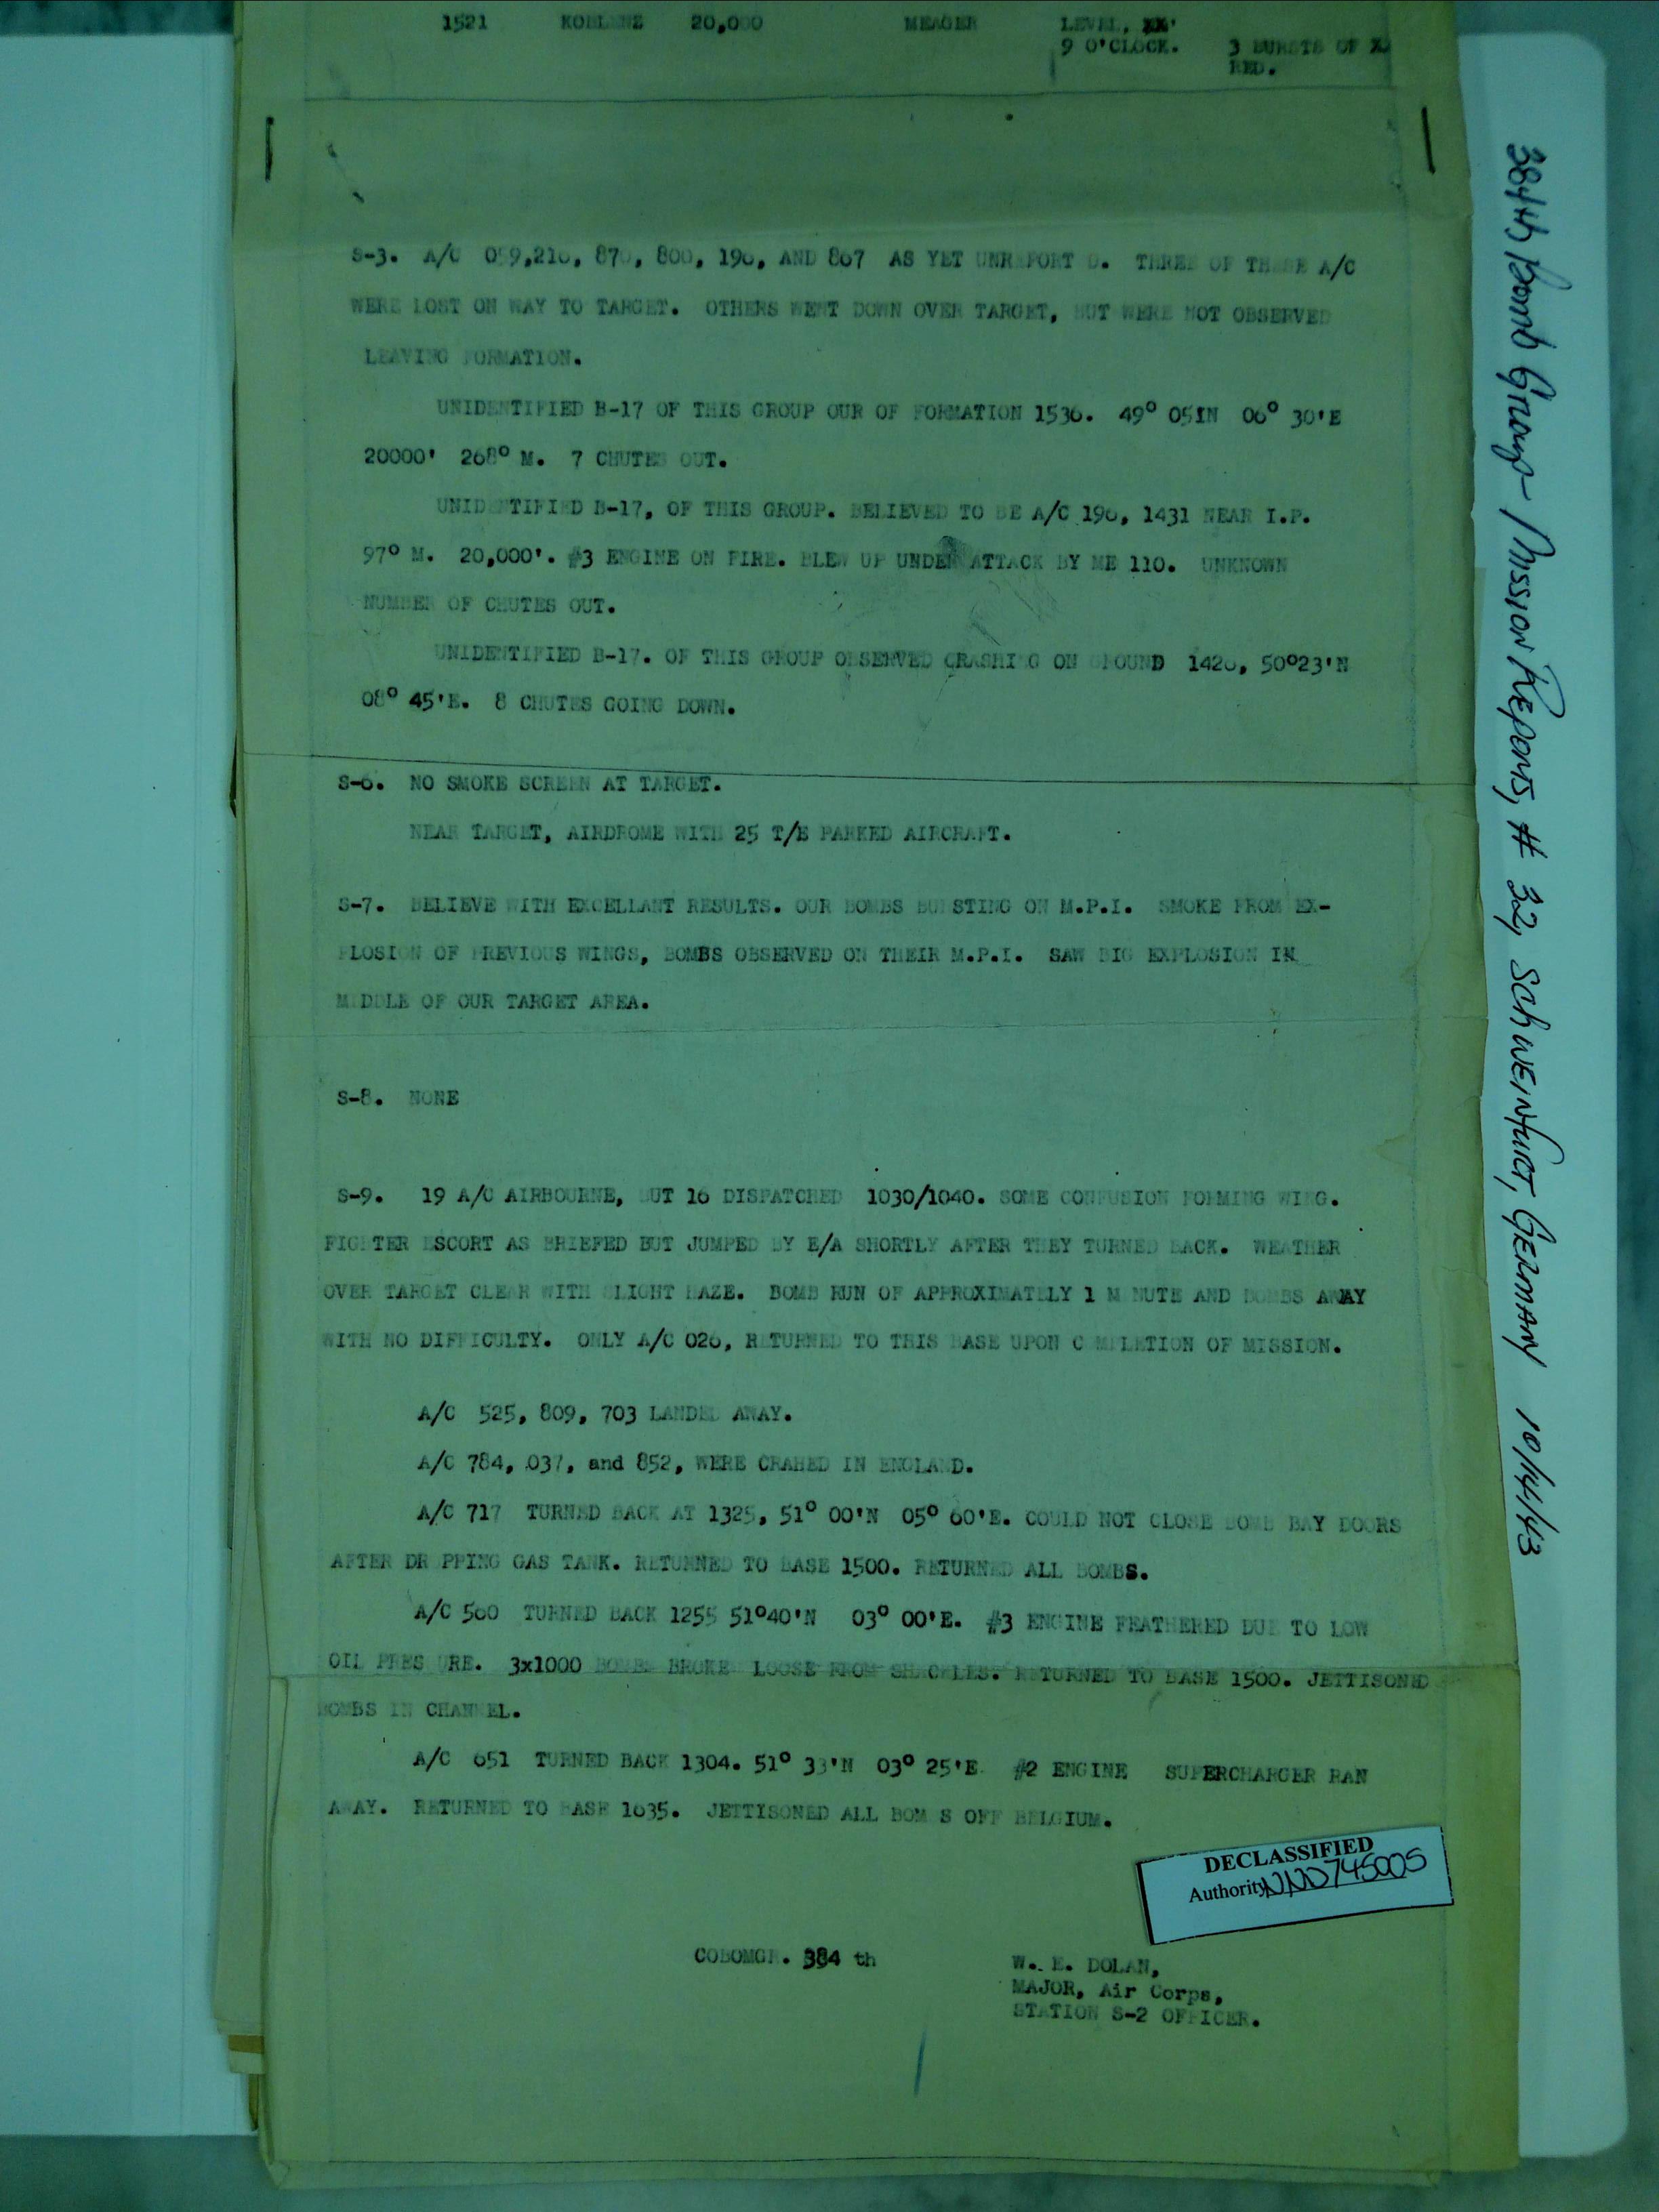 1521 KOBLENZ 20,000 MEAGER LEVEL, XX'
9 O'CLOCK. 3 BURSTS OF X
RED.
S-3. A/C 059,216, 870, 800, 196, AND 867 AS YET UNREPORTED. THREE OF THESE A/C
WERE LOST ON WAY TO TARGET. OTHERS WENT DOWN OVER TARGET, BUT WERE NOT OBSERVED
LEAVING FORMATION.
UNIDENTIFIED B-17 OF THIS GROUP OUR OF FORMATION 1536. 49° 05IN 06° 30'E
20000' 268° M. 7 CHUTES OUT.
UNIDENTIFIED B-17, OF THIS GROUP. BELIEVED TO BE A/C 196, 1431 NEAR I.P.
97° M. 20,000'. #3 ENGINE ON FIRE. BLEW UP UNDER ATTACK BY ME 110. UNKNOWN
NUMBER OF CHUTES OUT.
UNIDENTIFIED B-17. OF THIS GROUP OBSERVED CRASHING ON GROUND 1426, 50°23'N
08° 45'E. 8 CHUTES GOING DOWN.
S-6. NO SMOKE SCREEN AT TARGET.
NEAR TARGET, AIRDROME WITH 25 T/E PARKED AIRCRAFT.
S-7. BELIEVE WITH EXCELLANT RESULTS. OUR BOMBS BURSTING ON M.P.I. SMOKE FROM EX-
PLOSION OF PREVIOUS WINGS, BOMBS OBSERVED ON THEIR M.P.I. SAW BIG EXPLOSION IN
MIDDLE OF OUR TARGET AREA.
S-8. NONE
S-9. 19 A/C AIRBOURNE, BUT 16 DISPATCHED 1030/1040. SOME CONFUSION FORMING WING.
FIGHTER ESCORT AS BRIEFED BUT JUMPED BY E/A SHORTLY AFTER THEY TURNED BACK. WEATHER
OVER TARGET CLEAR WITH SLIGHT HAZE. BOMB RUN OF APPROXIMATELY 1 MINUTE AND BOMBS AWAY
WITH NO DIFFICULTY. ONLY A/C 026, RETURNED TO THIS BASE UPON COMPLETION OF MISSION.
A/C 525, 809, 703 LANDED AWAY.
A/C 784, 037, and 852, WERE CRAHED IN ENGLAND.
A/C 717 TURNED BACK AT 1325, 51° 00'N 05° 60'E. COULD NOT CLOSE BOMB BAY DOORS
AFTER DROPPING GAS TANK. RETURNED TO BASE 1500. RETURNED ALL BOMBS.
A/C 560 TURNED BACK 1255 51°40'N 03° 00'E. #3 ENGINE FEATHERED DUE TO LOW
OIL PRESSURE. 3x1000 BOMBS BROKE LOOSE FROM SHACKLES. RETURNED TO BASE 1500. JETTISONED
BOMBS IN CHANNEL.
A/C 651 TURNED BACK 1304. 51° 33'N 03° 25'E #2 ENGINE SUPERCHARGER RAN
AWAY. RETURNED TO BASE 1635. JETTISONED ALL BOMBS OFF BELGIUM.
DECLASSIFIED
Authority NND745005
COBOMGR. 384 th
W. E. DOLAN,
MAJOR, Air Corps,
STATION S-2 OFFICER.
384th Bomb Group - Mission Reports, # 32, Schweinfurt, Germany 10/14/43